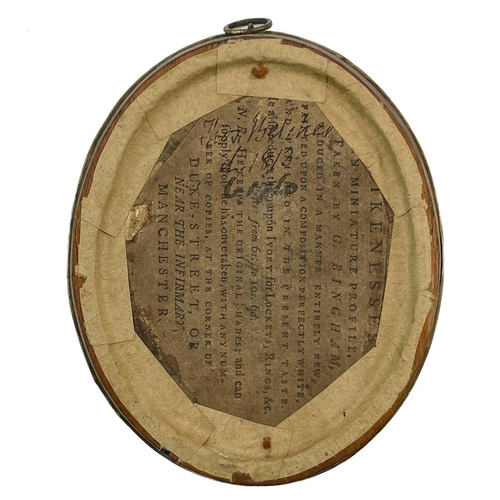 LIKENESSES
IN MINIATURE PROFILE,
TAKEN BY G. BINGHAM,
PRODUCED IN A MANNER ENTIRELY NEW,
PAINTED UPON A COMPOSITION PERFECTLY WHITE,
AND IN THE PRESENT TASTE.
upon IVORY, for LOCKETS, RINGS, &c.
from 6s. to
N. B. HE THE ORIGINAL SHADES; and can
supply those he has once taken, with ANY NUM-
BER OF COPIES, AT THE CORNER OF
DUKE-STREET, OR
NEAR THE INFIRMARY,
MANCHESTER.